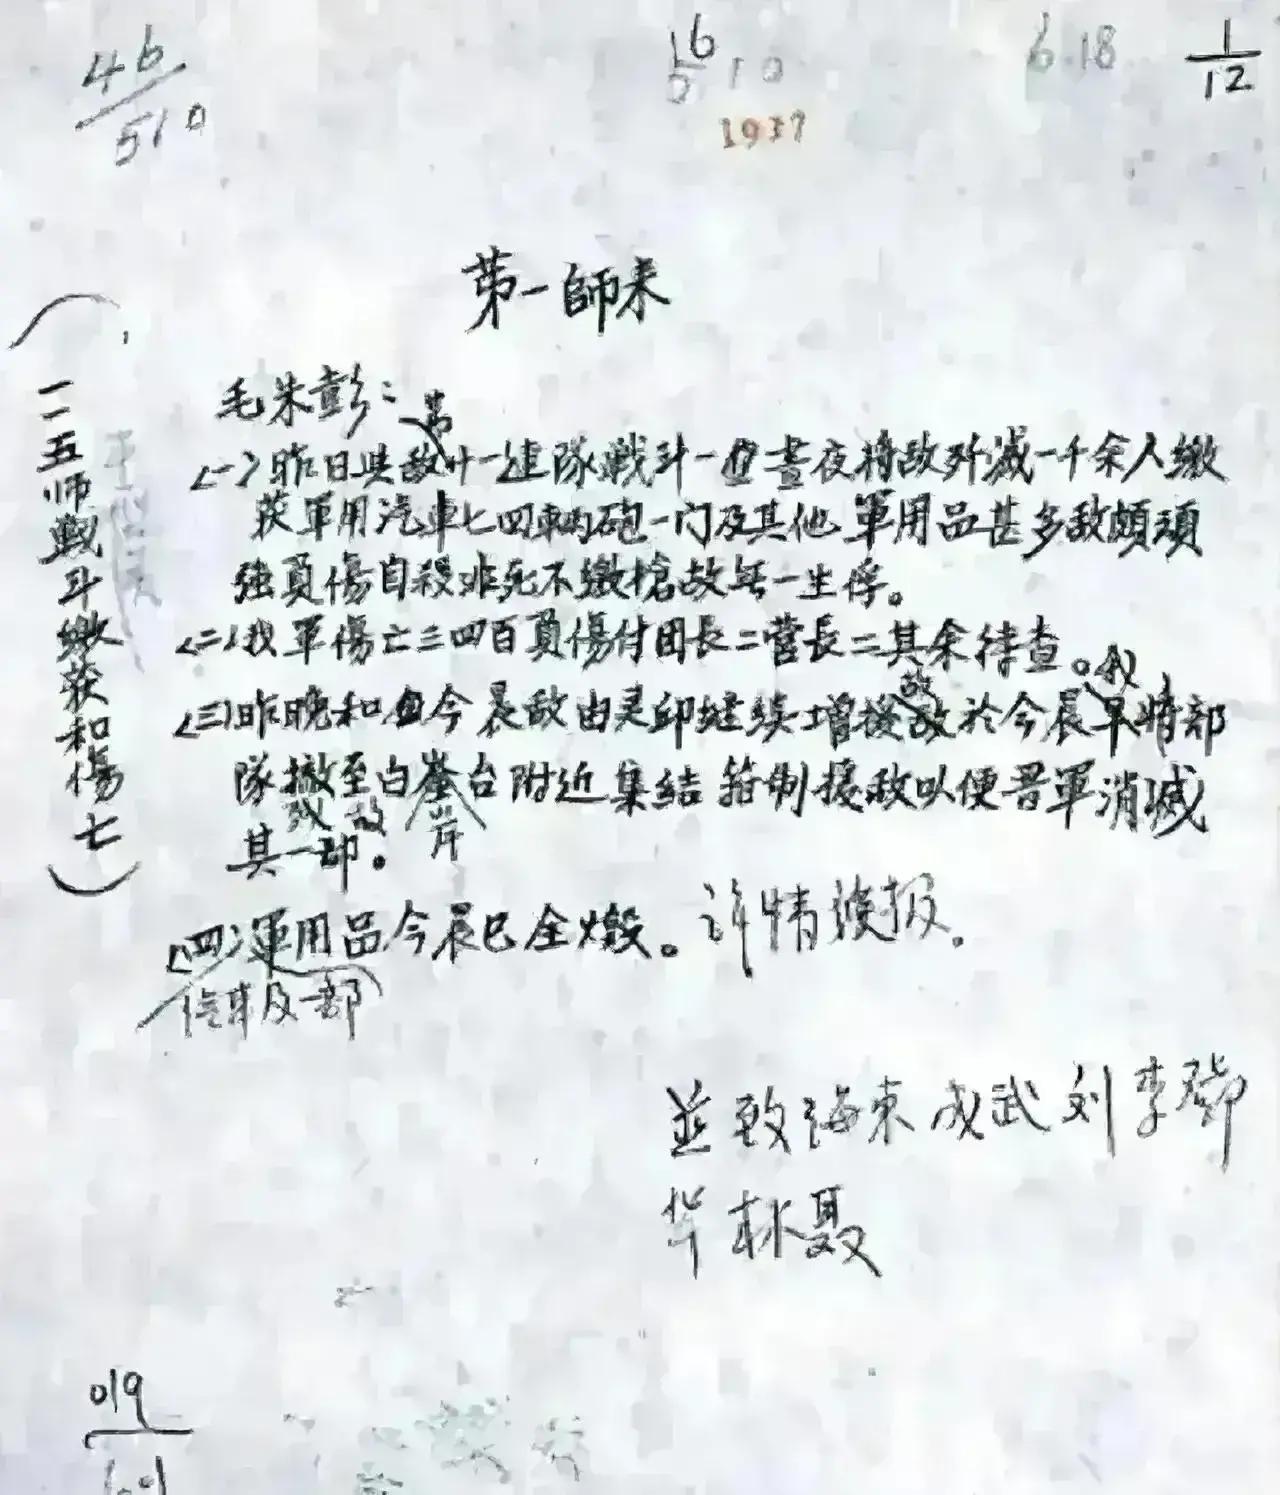 46
510
16
10
6.18
1
12
1937
第一師来
(一一五师戰斗缴获和傷亡)
毛朱彭:
第
(一)昨日與敵廿一連隊戰斗一晝夜將敌歼滅一千余人缴
获軍用汽車七四車內砲一门及其他軍用品甚多敌頗頑
强負傷自殺非死不缴槍故无一生俘。
(二)我軍傷亡三四百負傷付团長二营長二其余待查。我
敌
(三)昨晚和今晨敌由灵邱继续增援敌於今晨早將部
隊撤至白崟台附近集结箝制援敌以便晋軍消滅
我敌
岸
其一部。
(四)軍用品今晨已全燬。詳情後报.
汽車及一部
並致海東成武刘李鄧
华林聂
019